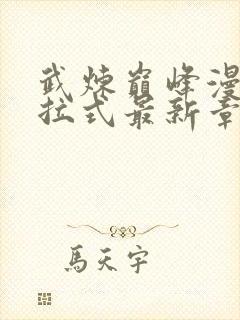 武煉巔峰漫
拉式最新章
馬天宇